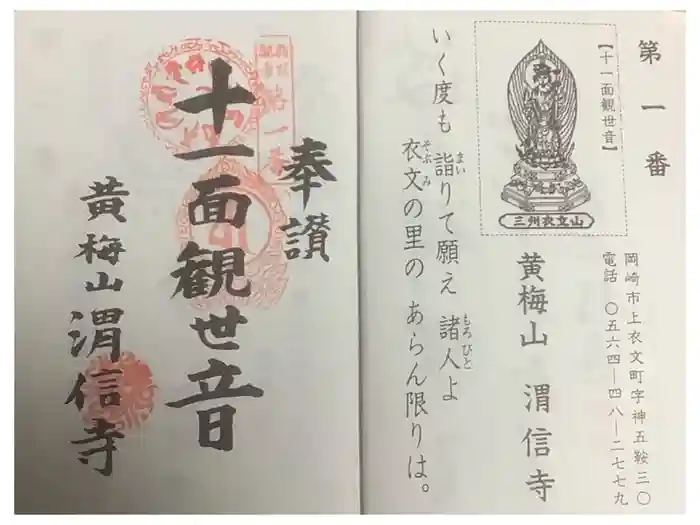 第一番
【十一面観世音】
三州衣文山
岡崎市上衣文町字神五鞍三〇
電話 〇五六四―四八―二七七九
黄梅山 渭信寺
いく度も 詣りて願え 諸人よ
まい
もろびと
衣文の里の あらん限りは。
そぶみ
奉讃
十一面観世音
黄梅山 渭信寺